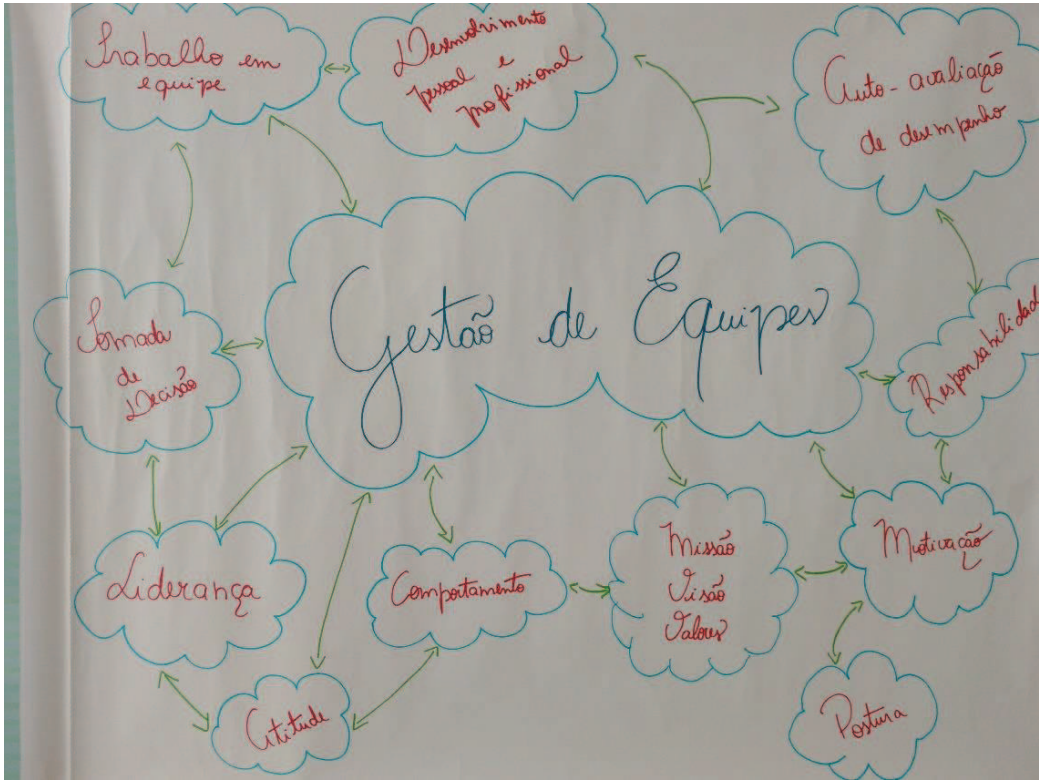 Trabalho em
equipe
Desenvolvimento
pessoal e
profissional
Auto-avaliação
de desempenho
Gestão de Equipes
Tomada
de
Decisão
Responsabilidad
Liderança
Comportamento
Missão
Visão
Valores
Motivação
Atitude
Postura